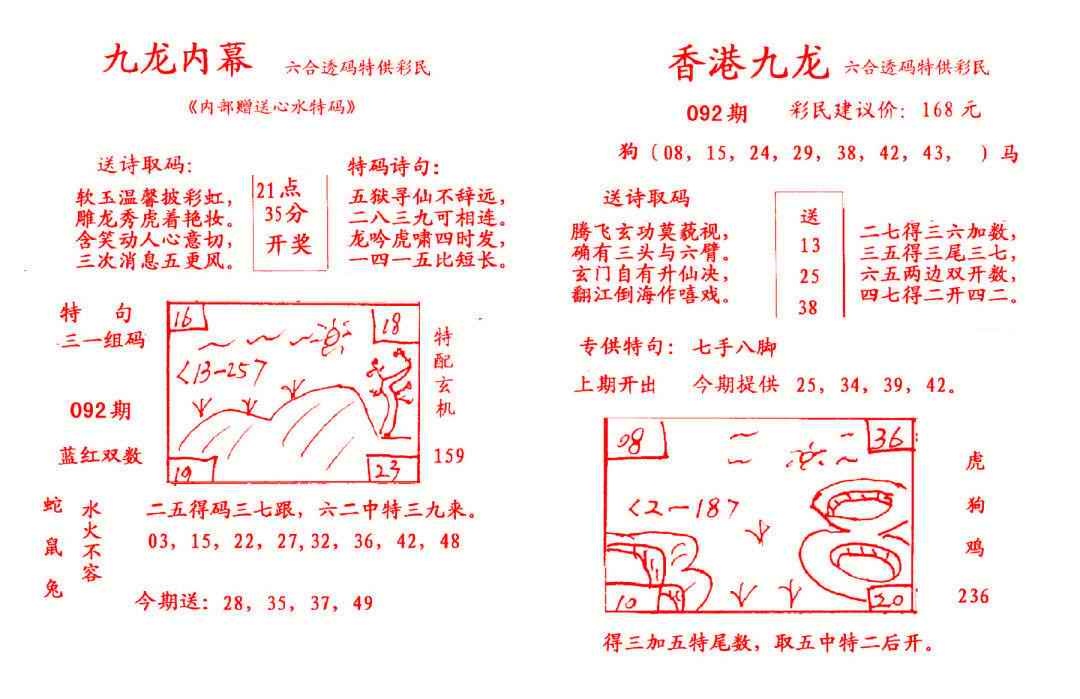 九龙内幕 六合透码特供彩民
《内部赠送心水特码》
送诗取码:
软玉温馨披彩虹,
雕龙秀虎着艳妆。
含笑动人心意切,
三次消息五更风。
21点
35分
开奖
特码诗句:
五狱寻仙不辞远,
二八三九可相连。
龙吟虎啸四时发,
一四一五比短长。
特 句
三一组码
092期
蓝红双数
16
18
<13-25>
19
23
特配玄机
159
蛇鼠兔
水火不容
二五得码三七跟,六二中特三九来。
03, 15, 22, 27, 32, 36, 42, 48
今期送: 28, 35, 37, 49
香港九龙 六合透码特供彩民
092期 彩民建议价: 168元
狗(08, 15, 24, 29, 38, 42, 43, )马
送诗取码
腾飞玄功莫藐视,
确有三头与六臂。
玄门自有升仙决,
翻江倒海作嘻戏。
送
13
25
38
二七得三六加数,
三五得三尾三七,
六五两边双开数,
四七得二开四二。
专供特句: 七手八脚
上期开出 今期提供 25, 34, 39, 42。
08
36
<2-18>
10
20
虎
狗
鸡
236
得三加五特尾数,取五中特二后开。